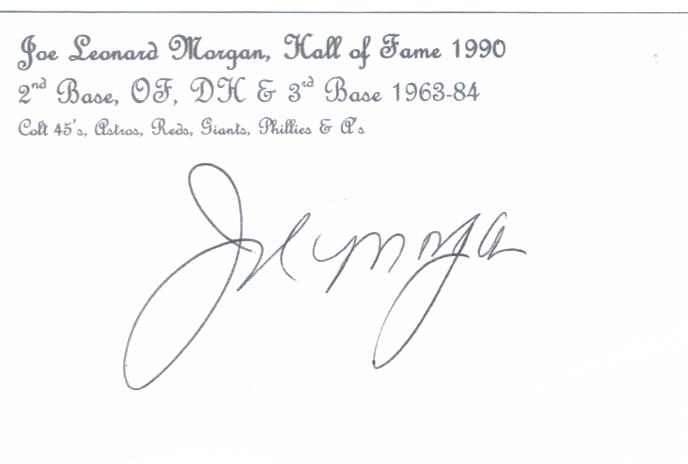 Joe Leonard Morgan, Hall of Fame 1990
2nd Base, OF, DH & 3rd Base 1963-84
Colt 45's, Astros, Reds, Giants, Phillies & A's
Joe Morgan